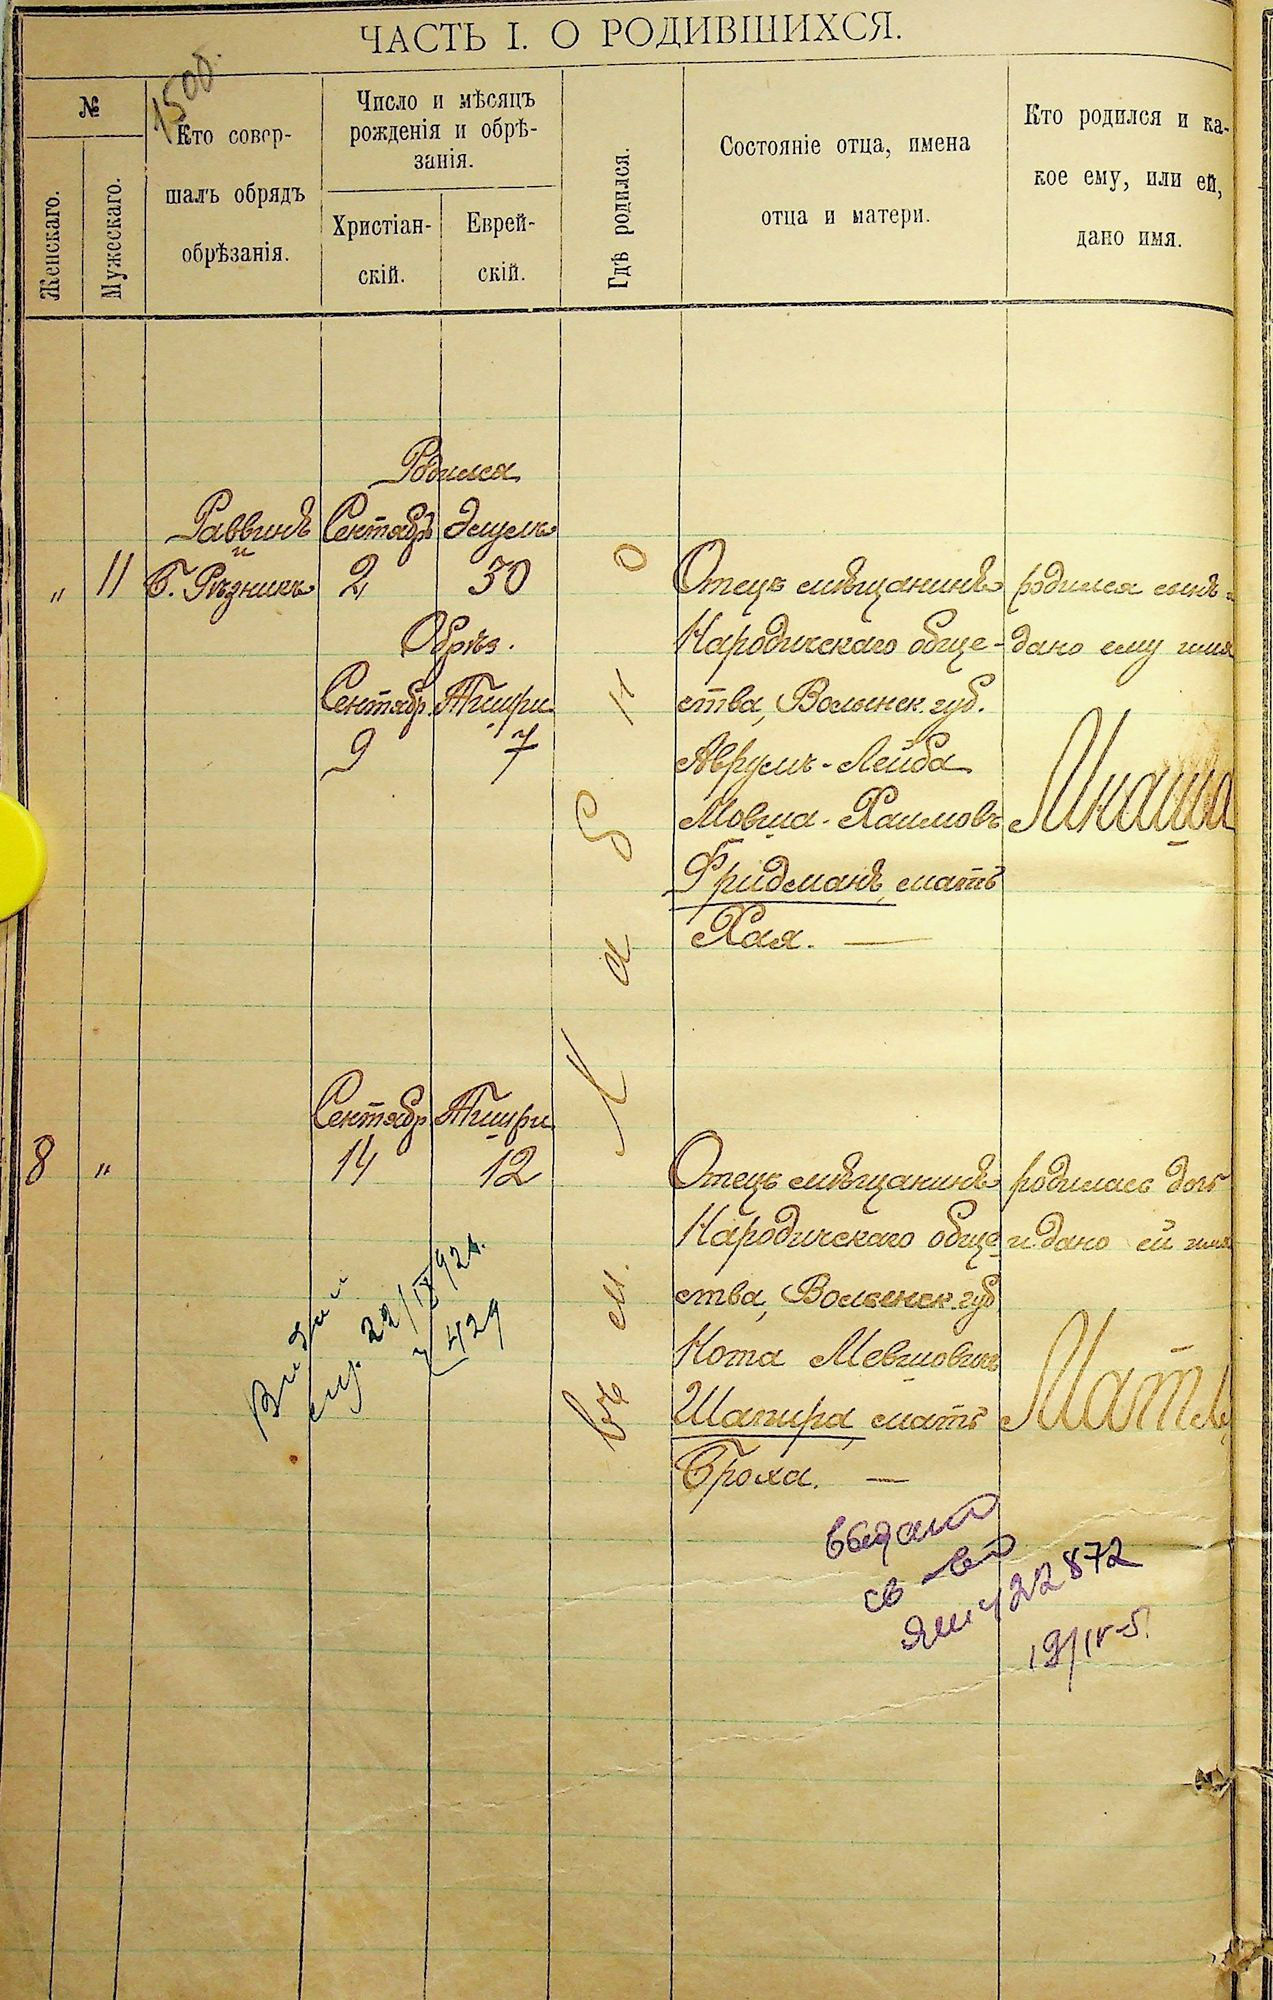 ЧАСТЬ I. О РОДИВШИХСЯ.
1500.
№
Женскаго.
Мужескаго.
Кто совер-
шалъ обрядъ
обрѣзанія.
Число и мѣсяцъ
рожденія и обрѣ-
занія.
Христіан-
скій.
Еврей-
скій.
Гдѣ родился.
Состояніе отца, имена
отца и матери.
Кто родился и ка-
кое ему, или ей,
дано имя.
„ 11
Раввинъ
и
Б. Рѣзникъ
Родился
Сентябр
2
Элулъ
30
Обрѣз.
Сентябр.
9
Тишри
7
въ м. Хабно
Отецъ мѣщанинъ
Народичскаго обще-
ства, Волынск. губ.
Аврумъ-Лейба
Мовша-Хаимовъ
Фридманъ, мать
Хая. —
родился сынъ
дано ему имя
8 „
Сентябр
14
Тишри
12
Отецъ мѣщанинъ
Народичскаго обще-
ства, Волынск. губ
Нота
Шапира, мать
Броха. —
родилась дочь
и дано ей имя
22/IX 92
429
22872
19/IV